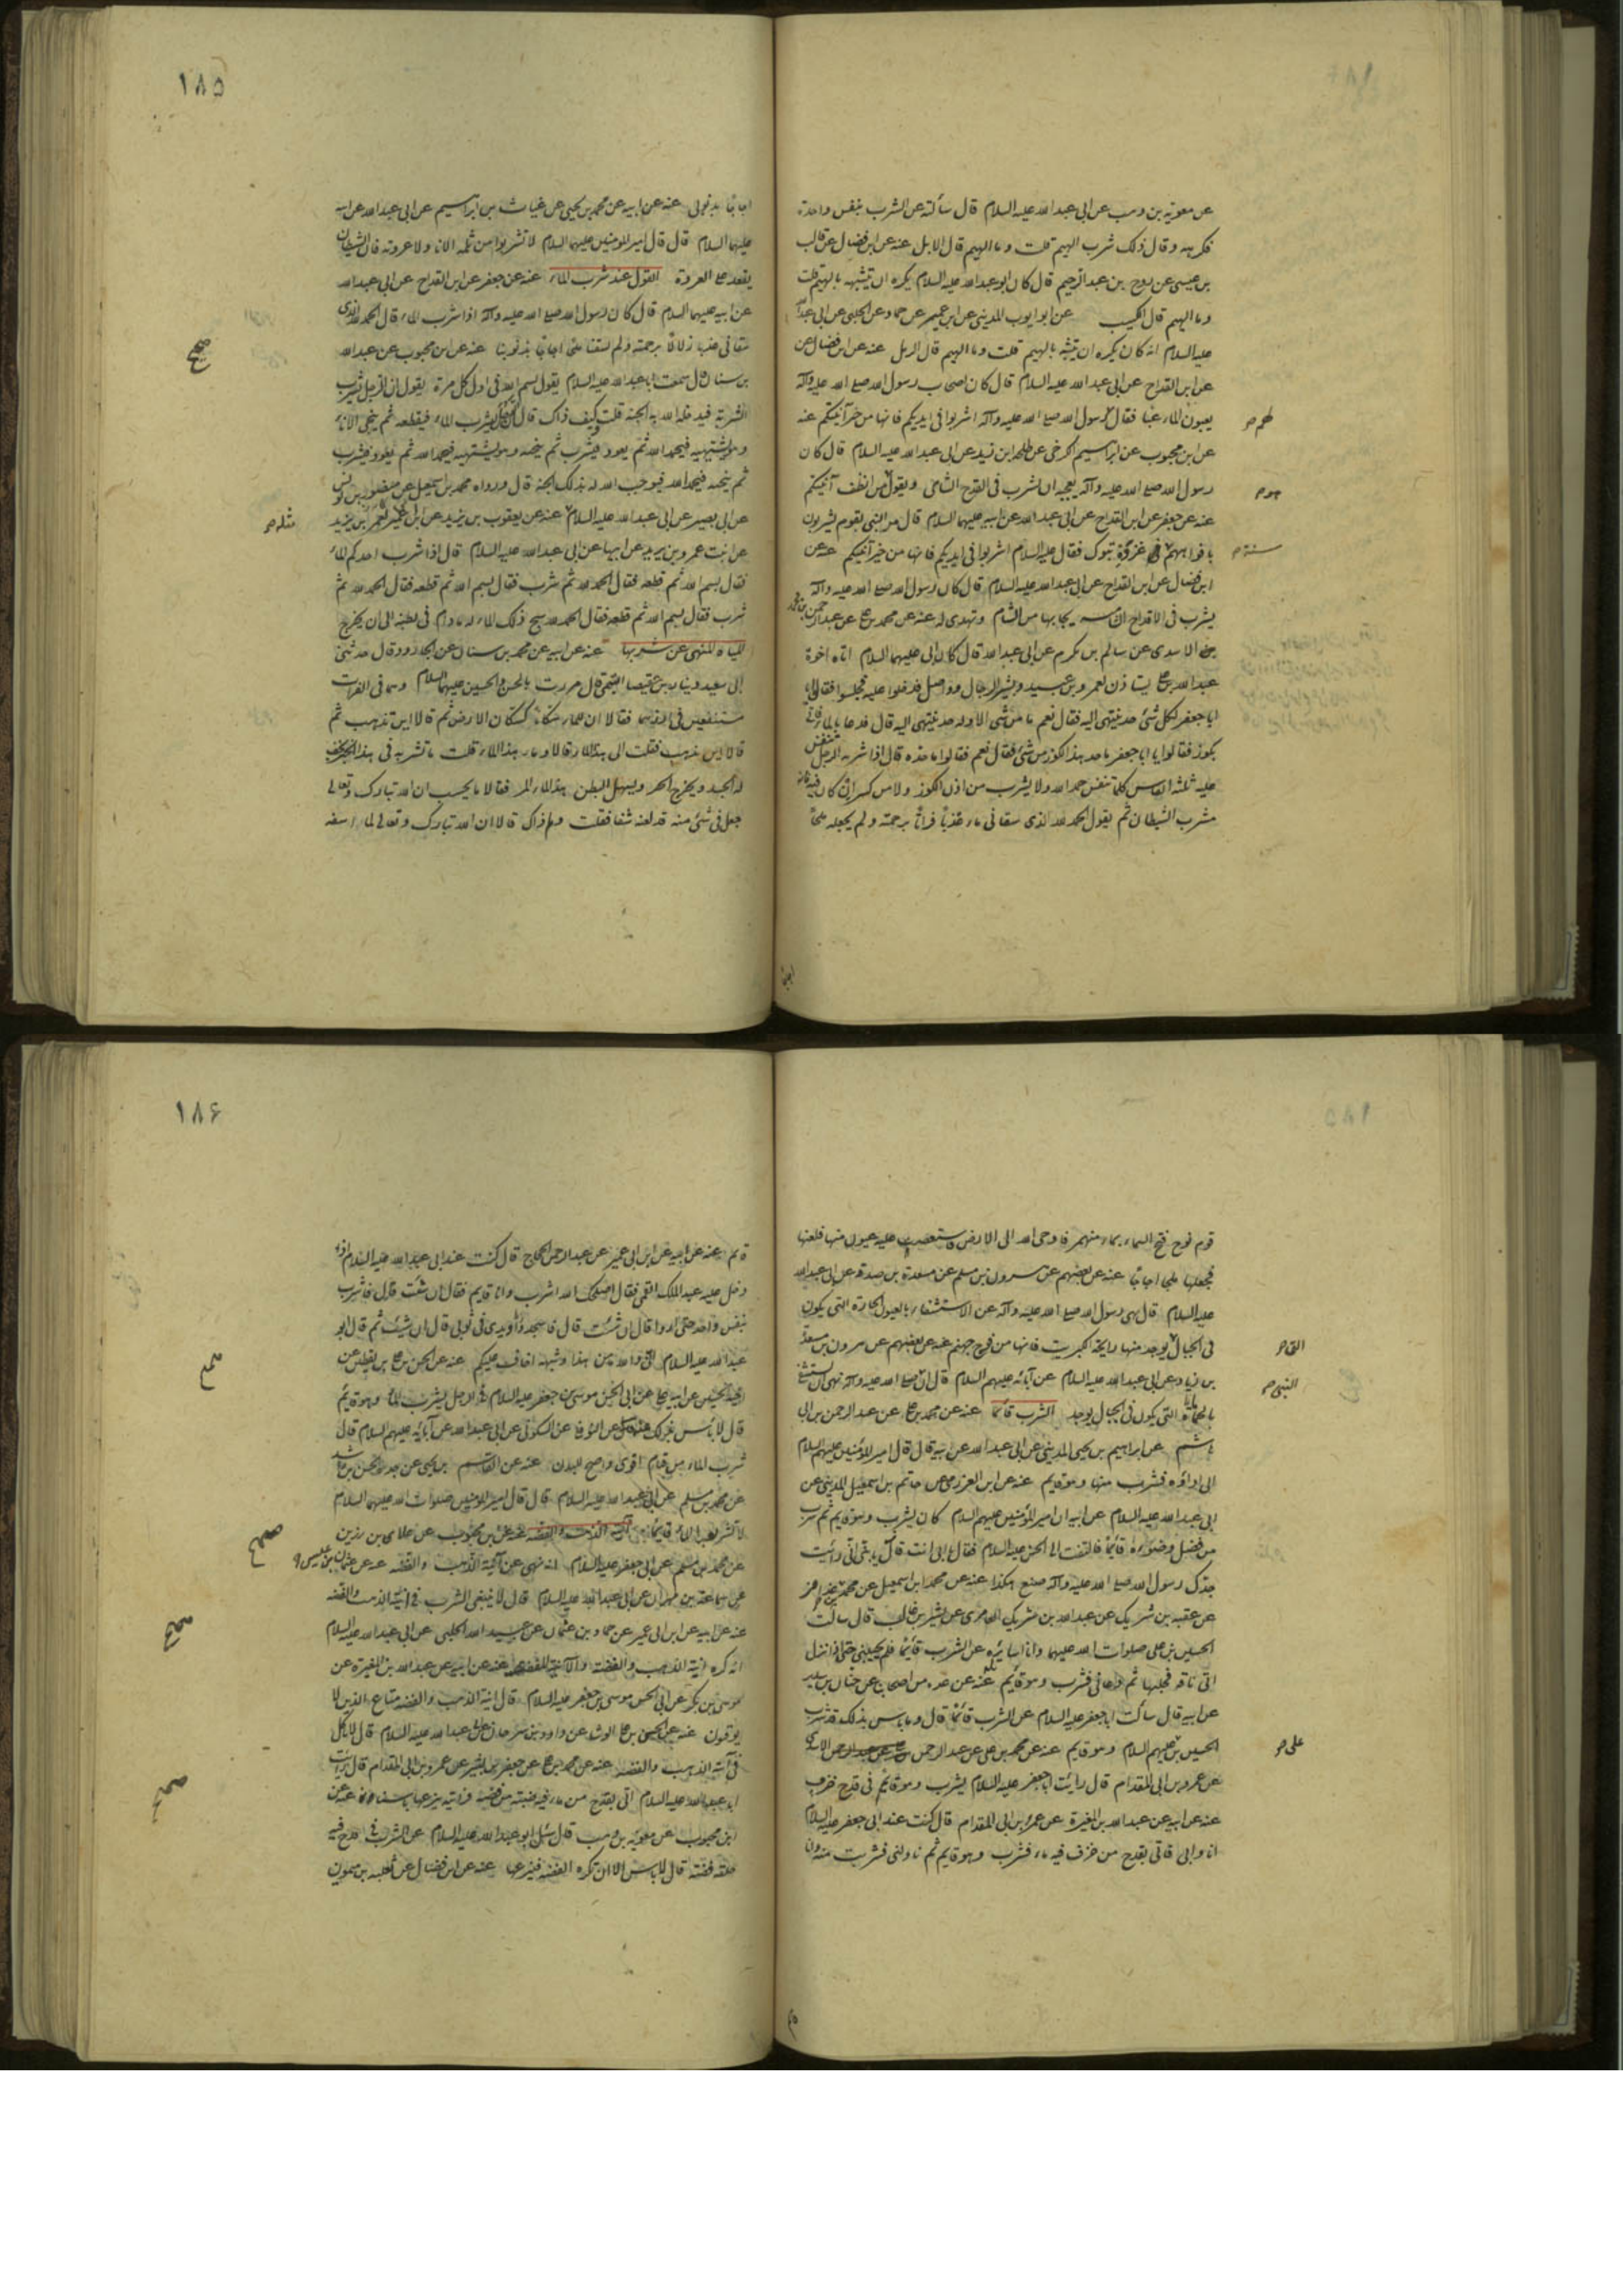 عن معوية بن وهب عن ابى عبد الله عليه السلام قال سألته عن الشرب بنفس واحدة
فكرهه وقال ذلك شرب الهيم قلت وما الهيم قال الابل عنه عن ابن فضال عن غالب
بن عيسى عن روح بن عبد الرحيم قال كان ابو عبد الله عليه السلام يكره ان يتشبه بالهيم قلت
وما الهيم قال الكثيب عن ابو ايوب المدينى عن ابن ابى عمير عن حماد عن الحلبى عن ابى عبد الله
عليه السلام انه كان يكره ان يتشبه بالهيم قلت وما الهيم قال الرمل عنه عن ابن فضال عن
عن ابن القداح عن ابى عبد الله عليه السلام قال كان اصحاب رسول الله صلى الله عليه وآله
يعبون الماء عبا فقال رسول الله صلى الله عليه وآله اشربوا فى ايديكم فانها من خير آنيتكم عنه
عن ابن محبوب عن ابراهيم الكرخى عن طلحة بن زيد عن ابى عبد الله عليه السلام قال كان
رسول الله صلى الله عليه وآله يعجبه ان يشرب فى القدح الشامى ويقول من انظف آنيتكم
عنه عن جعفر عن ابن القداح عن ابى عبد الله عن ابيه عليهما السلام قال مر النبى بقوم يشربون
بافواههم فى غزوة تبوك فقال عليه السلام اشربوا فى ايديكم فانها من خير آنيتكم عنه عن
ابن فضال عن ابن القداح عن ابى عبد الله عليه السلام قال كان رسول الله صلى الله عليه وآله
يشرب فى الاقداح الشامية يجابها من الشام وتهدى له عنه عن محمد بن على عن عبد الرحمن بن محمد
بن الاسدى عن سالم بن مكرم عن ابى عبد الله قال كان ابى عليهما السلام اتاه اخوة
عبد الله بن على يستاذن لعمرو بن عبيد وبشير الرحال وواصل فدخلوا عليه فجلسوا فقالوا يا
ابا جعفر لكل شئ حد ينتهى اليه فقال نعم ما من شئ الا وله حد ينتهى اليه قال فدعا بالماء فاتى
بكوز فقالوا يا ابا جعفر ما حد هذا الكوز من شئ فقال نعم فقالوا ما حده قال اذا شربه الرجل تنفس
عليه ثلثة انفاس كلما تنفس حمد الله ولا يشرب من اذن الكوز ولا من كسر ان كان فيه فانه
مشرب الشيطان ثم يقول الحمد لله الذى سقانى ماء عذبا فراتا برحمته ولم يجعله ملحا
١٨٥
اجاجا بذنوبى عنه عن ابيه عن محمد بن يحيى عن غياث بن ابراهيم عن ابى عبد الله عن ابيه
عليهما السلام قال قال امير المؤمنين عليهما السلام لا تشربوا من ثلمة الاناء ولا عروته فان الشيطان
يقعد على العروة القول عند شرب الماء عنه عن جعفر عن ابن القداح عن ابى عبد الله
عن ابيه عليهما السلام قال كان رسول الله صلى الله عليه وآله اذا شرب الماء قال الحمد لله الذى
سقانى عذبا زلالا برحمته ولم يسقنا ملحا اجاجا بذنوبنا عنه عن ابن محبوب عن عبد الله
بن سنان قال سمعت ابا عبد الله عليه السلام يقول بسم الله فى اول كل مرة يقول ان الرجل يشرب
الشربة فيدخله الله به الجنة قلت وكيف ذاك قال ان الرجل يشرب الماء فيقطعه ثم ينحى الاناء
وهو يشتهيه فيحمد الله ثم يعود فيشرب ثم ينحيه وهو يشتهيه فيحمد الله ثم يعود فيشرب
ثم ينحيه فيحمد الله فيوجب الله له بذلك الجنة قال ورواه محمد بن اسمعيل عن منصور بن يونس
عن ابى بصير عن ابى عبد الله عليه السلام عنه عن يعقوب بن يزيد عن ابن ابى عمير عن عمر بن يزيد
عن ابنت عمرو بن يزيد عن ابيها عن ابى عبد الله عليه السلام قال اذا شرب احدكم الماء
فقال بسم الله ثم قطعه فقال الحمد لله ثم شرب فقال بسم الله ثم قطعه فقال الحمد لله ثم
شرب فقال بسم الله ثم قطعه فقال الحمد لله سبح ذلك الماء له ما دام فى بطنه الى ان يخرج
المياه المنهى عن شربها عنه عن ابيه عن محمد بن سنان عن ابى الجارود قال حدثنى
ابى سعيد دينار بن عقيصا التيمى قال مررت بالحسن والحسين عليهما السلام وهما فى الفرات
مستنقعين فى ازارهما فقالا ان للماء سكانا كسكان الارض ثم قالا اين تذهب ثم
قالا اين تذهب فقلت الى هذا الماء قالا وما هذا الماء قلت ماء تشربه فى هذا الحير يخف
له الجسد ويخرج الحر ويسهل البطن هذا الماء المر فقالا ما يحسب ان الله تبارك وتعالى
جعل فى شئ منه قد لعنه شفا فقلت ولم ذاك قالا ان الله تبارك وتعالى لما اسفه
قوم نوح فتح السماء بماء منهمر فاوحى الله الى الارض فاستعصت عليه عيون منها فلعنها
فجعلها ملحا اجاجا عنه عن بعضهم عن هرون بن مسلم عن مسعدة بن صدقة عن ابى عبد الله
عليه السلام قال نهى رسول الله صلى الله عليه وآله عن الاستشفاء بالعيون الحارة التى يكون
فى الجبال يوجد منها رايحة الكبريت فانها من فوح جهنم عنه عن بعضهم عن هرون بن مسعدة
بن زياد عن ابى عبد الله عليه السلام عن آبائه عليهم السلام قال ان صلى الله عليه وآله نهى ان يستشفى
بالحمات التى يكون فى الجبال يوجد الشرب قائما عنه عن محمد بن على عن عبد الرحمن بن ابى
هاشم عن ابراهيم بن يحيى المدينى عن ابى عبد الله عن ابيه قال قال امير المؤمنين عليهم السلام
الى اداوة فشرب منها وهو قايم عنه عن ابن العزرمى عن حاتم بن اسمعيل المدينى عن
ابى عبد الله عليه السلام عن ابيه ان امير المؤمنين عليهم السلام كان يشرب وهو قايم ثم شرب
من فضل وضوءه قائما فالتفت الى الحسن عليه السلام فقال بابى انت قال يا بنى انى رايت
جدك رسول الله صلى الله عليه وآله صنع هكذا عنه عن محمد بن اسمعيل عن محمد بن عذافر
عن عقبة بن شريك عن عبد الله بن شريك العامرى عن بشير بن غالب قال سالت
الحسين بن على صلوات الله عليهما وانا اسايره عن الشرب قائما فلم يجيبنى حتى اذا نزل
اتى ناقة فحلبها ثم دعانى فشرب وهو قايم عنه عن عدة من اصحابنا عن حنان بن سدير
عن ابيه قال سألت ابا جعفر عليه السلام عن الشرب قائما قال وما باس بذلك قد شرب
الحسين بن عليهم السلام وهو قايم عنه عن محمد بن على عن عبد الرحمن الاسدى
عن عمرو بن ابى المقدام قال رايت ابا جعفر عليه السلام يشرب وهو قائم فى قدح خزف
عنه عن ابيه عن عبد الله بن المغيرة عن عمرو بن ابى المقدام قال كنت عند ابى جعفر عليه السلام
انا وابى فاتى بقدح من خزف فيه ماء فشرب وهو قايم ثم ناولنى فشربت منه وانا
١٨۶
قايم عنه عن ابيه عن ابن ابى عمير عن عبد الرحمن الحجاج قال كنت عند ابى عبد الله عليه السلام اذ
دخل عليه عبد الملك القمى فقال اصلحك الله اشرب وانا قايم فقال ان شئت قال فاشرب
بنفس واحد حتى اروا قال ان شئت قال فاسجد ويدى فى ثوبى قال ان شئت ثم قال ابو
عبد الله عليه السلام انى والله من هذا وشبهه اخاف عليكم عنه عن الحسن بن على بن يقطين عن
اخيه الحسين عن ابيه على عن ابى الحسن موسى بن جعفر عليه السلام فى الرجل يشرب الماء وهو قايم
قال لا باس بذلك عنه عن النوفلى عن السكونى عن ابى عبد الله عن آبائه عليهم السلام قال
شرب الماء من قيام اقوى واصح للبدن عنه عن القاسم بن يحيى عن جده الحسن بن راشد
عن محمد بن مسلم عن ابى عبد الله عليه السلام قال قال امير المؤمنين صلوات الله عليهما السلام
لا تشربوا الماء قايما آنية الذهب والفضة عنه عن بن محبوب عن علاى بن رزين
عن محمد بن مسلم عن ابى جعفر عليه السلام انه نهى عن آنية الذهب والفضة عنه عن عثمان بن عيسى
عن سماعة بن مهران عن ابى عبد الله عليه السلام قال لا ينبغى الشرب فى آنية الذهب والفضة
عنه عن ابيه عن ابن ابى عمير عن حماد بن عثمان عن عبيد الله الحلبى عن ابى عبد الله عليه السلام
انه كره آنية الذهب والفضة والآنية المفضضة عنه عن ابيه عن عبد الله بن المغيرة عن
موسى بن بكر عن ابى الحسن موسى بن جعفر عليه السلام قال آنية الذهب والفضة متاع الذين لا
يوقنون عنه عن الحسن بن على الوشا عن داود بن سرحان عن ابى عبد الله عليه السلام قال لا تاكل
فى آنية الذهب والفضة عنه عن محمد بن على عن جعفر بن بشير عن عمرو بن ابى المقدام قال رايت
ابا عبد الله عليه السلام اتى بقدح من ماء فيه ضبة من فضة فرايته ينزعها باسنانه عنه عن
ابن محبوب عن معوية بن وهب قال سئل ابو عبد الله عليه السلام عن الشرب فى قدح فيه
حلقة فضة قال لا باس الا ان تكره الفضة فينزعها عنه عن ابن فضال عن ثعلبة بن ميمون